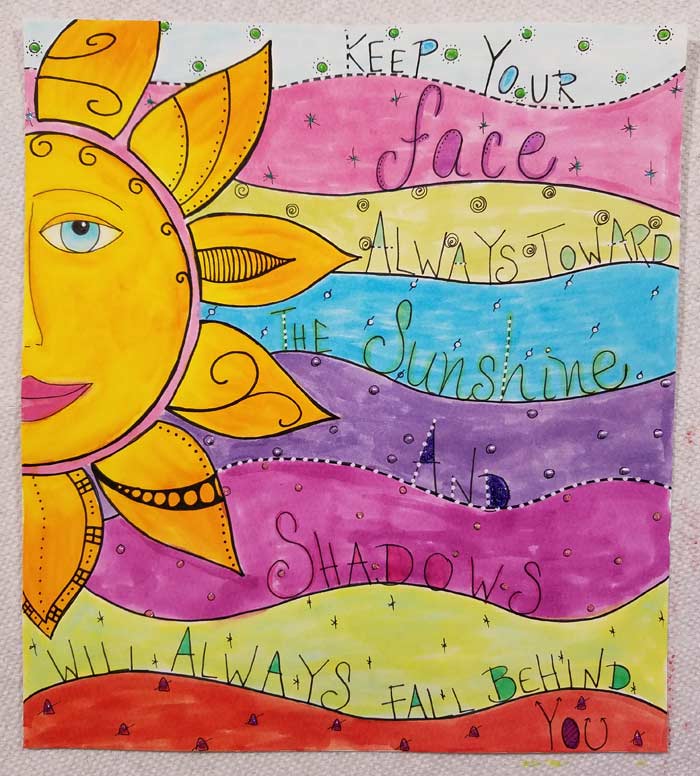 KEEP YOUR
face
ALWAYS TOWARD
THE Sunshine
AND
SHADOWS
WILL ALWAYS FALL BEHIND
YOU